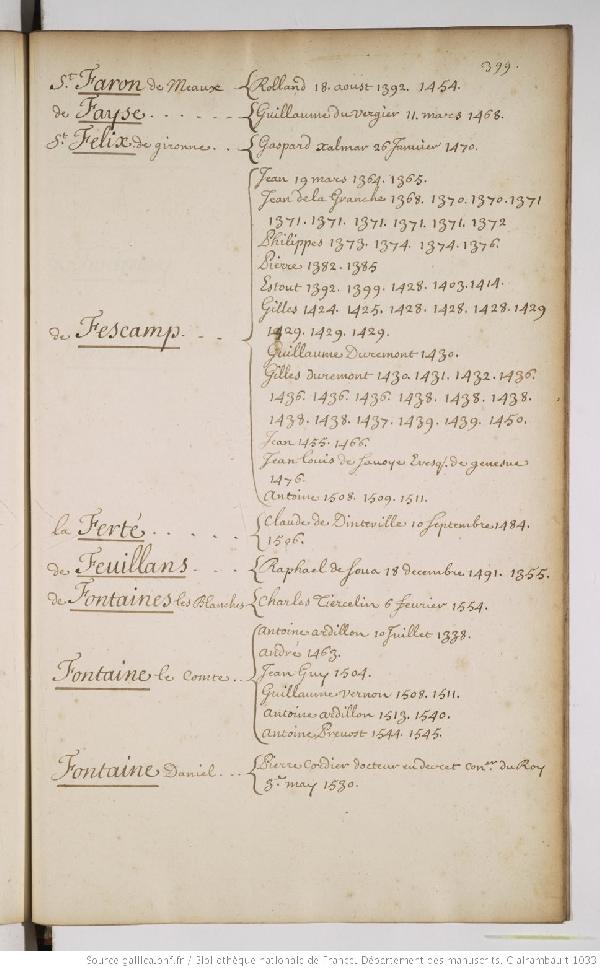 399.
St. Faron de Meaux { Rolland 18. aoust 1392. 1454.
de Fayse . . . . . . . { Guillaume du vergier 11. mars 1468.
St. Felix de gironne . . { Gaspard xalmar 26 Janvier 1470.
Jean 19 mars 1364. 1365.
Jean de la Granche 1368. 1370. 1370. 1371
1371. 1371. 1371. 1371. 1371. 1372
Philippes 1373. 1374. 1374. 1376.
Pierre 1382. 1385
Estout 1392. 1399. 1428. 1403. 1414.
Gilles 1424. 1425. 1428. 1428. 1428. 1429
1429. 1429. 1429.
de Fescamp . . . {
Guillaume Duremont 1430.
Gilles duremont 1430. 1431. 1432. 1436.
1436. 1436. 1436. 1438. 1438. 1438.
1438. 1438. 1437. 1439. 1439. 1450.
Jean 1455. 1466.
Jean Louis de Savoye Evesq. de genesve
1476.
Antoine 1508. 1509. 1511.
la Ferté . . . . . { Claude de Dinteville 10 septembre 1484.
1506.
de Feuillans . . . . { Raphael de 18 decembre 1491. 1355.
de Fontaines les Blanches { Charles Tiercelin 6 fevrier 1554.
Antoine ardillon 10 Juillet 1338.
André 1463.
Fontaine le Comte . . { Jean Guy 1504.
Guillaume vernon 1508. 1511.
Antoine ardillon 1513. 1540.
Antoine Prevost 1544. 1545.
Fontaine Daniel . . . { Pierre Cordier docteur en decret conser. du Roy
3e. may 1530.
Source gallica.bnf.fr / Bibliothèque nationale de France. Département des manuscrits. Clairambault 1033